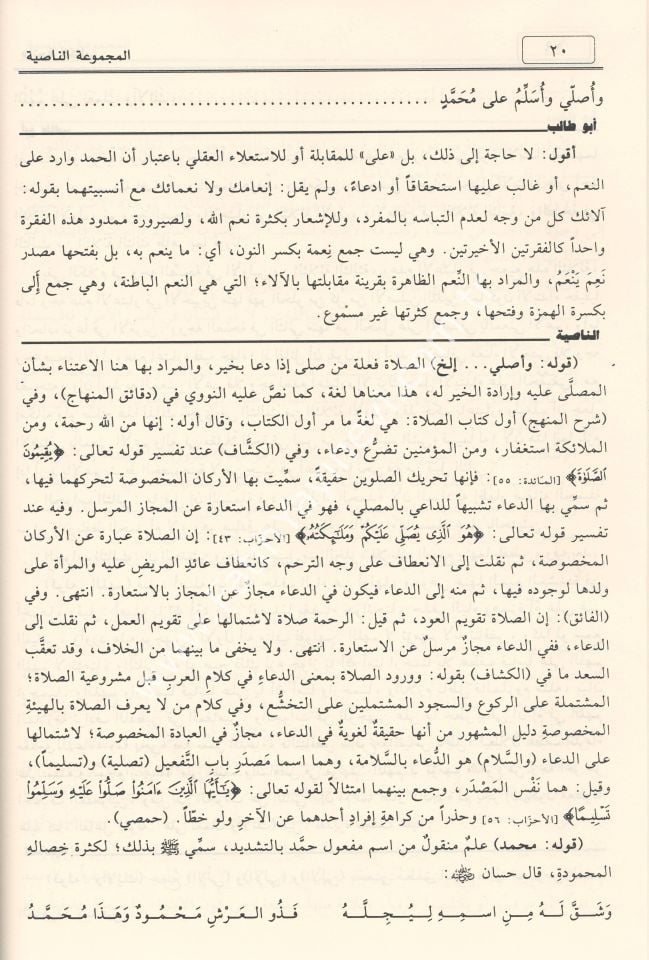 ٢٠
المجموعة الناصية
وأُصلّي وأُسَلِّمُ على مُحَمَّدٍ ................................................
أبو طالب
أقول: لا حاجة إلى ذلك، بل «على» للمقابلة أو للاستعلاء العقلي باعتبار أن الحمد وارد على
النعم، أو غالب عليها استحقاقاً أو ادعاءً، ولم يقل: إنعامك ولا نعمائك مع أنسبيتهما بقوله:
آلائك كل من وجه لعدم التباسه بالمفرد، وللإشعار بكثرة نعم الله، ولصيرورة ممدود هذه الفقرة
واحداً كالفقرتين الأخيرتين. وهي ليست جمع نِعمة بكسر النون، أي: ما ينعم به، بل بفتحها مصدر
نَعِمَ يَنْعَمُ، والمراد بها النِّعم الظاهرة بقرينة مقابلتها بالآلاء؛ التي هي النعم الباطنة، وهي جمع إلَى
بكسرة الهمزة وفتحها، وجمع كثرتها غير مسْموع.
الناصية
(قوله: وأصلي... إلخ) الصلاة فعلة من صلى إذا دعا بخير، والمراد بها هنا الاعتناء بشأن
المصلَّى عليه وإرادة الخير له، هذا معناها لغة، كما نصَّ عليه النووي في (دقائق المنهاج)، وفي
(شرح المنهج) أول كتاب الصلاة: هي لغةً ما مر أول الكتاب، وقال أوله: إنها من الله رحمة، ومن
الملائكة استغفار، ومن المؤمنين تضرُّع ودعاء، وفي (الكشَّاف) عند تفسير قوله تعالى: ﴿يُقِيمُونَ
الصَّلَوٰةَ﴾ [المائدة: ٥٥]: فإنها تحريك الصلوين حقيقةً، سمِّيت بها الأركان المخصوصة لتحركهما فيها،
ثم سمِّي بها الدعاء تشبيهاً للداعي بالمصلي، فهو في الدعاء استعارة عن المجاز المرسل. وفيه عند
تفسير قوله تعالى: ﴿هُوَ الَّذِي يُصَلِّي عَلَيْكُمْ وَمَلَٰٓئِكَتُهُ﴾ [الأحزاب: ٤٣]: إن الصلاة عبارة عن الأركان
المخصوصة، ثم نقلت إلى الانعطاف على وجه الترحم، كانعطاف عائدِ المريض عليه والمرأة على
ولدها لوجوده فيها، ثم منه إلى الدعاء فيكون في الدعاء مجازٌ عن المجاز بالاستعارة. انتهى. وفي
(الفائق): إن الصلاة تقويم العود، ثم قيل: الرحمة صلاة لاشتمالها على تقويم العمل، ثم نقلت إلى
الدعاء، ففي الدعاء مجازٌ مرسلٌ عن الاستعارة. انتهى. ولا يخفى ما بينهما من الخلاف، وقد تعقَّب
السعد ما في (الكشاف) بقوله: وورود الصلاة بمعنى الدعاءِ في كلامِ العربِ قبل مشروعية الصلاة؛
المشتملة على الركوع والسجود المشتملين على التخشُّع، وفي كلام من لا يعرف الصلاة بالهيئةِ
المخصوصةِ دليل المشهور من أنها حقيقةٌ لغويةٌ في الدعاء، مجازٌ في العبادة المخصوصة؛ لاشتمالها
على الدعاء (والسلام) هو الدُّعاء بالسَّلامة، وهما اسما مَصدَرِ بابِ التَّفعيل (تصلية) و(تسليماً)،
وقيل: هما نفْس المَصْدَر، وجمع بينهما امتثالاً لقوله تعالى: ﴿يَٰٓأَيُّهَا الَّذِينَ ءَامَنُوا صَلُّوا عَلَيْهِ وَسَلِّمُوا
تَسْلِيمًا﴾ [الأحزاب: ٥٦] وحذراً من كراهةِ إفرادِ أحدهما عن الآخرِ ولو خطّاً. (حمصي).
(قوله: محمد) علمٌ منقولٌ من اسم مفعول حمَّد بالتشديد، سمِّي ﷺ بذلك؛ لكثرة خِصالِهِ
المحمودةِ، قال حسان رضي الله عنه:
وَشَقَّ لَهُ مِنِ اسمِهِ لِيُجِلَّهُ فَذُو العَرْشِ مَحْمُودٌ وَهَذَا مُحَمَّدُ